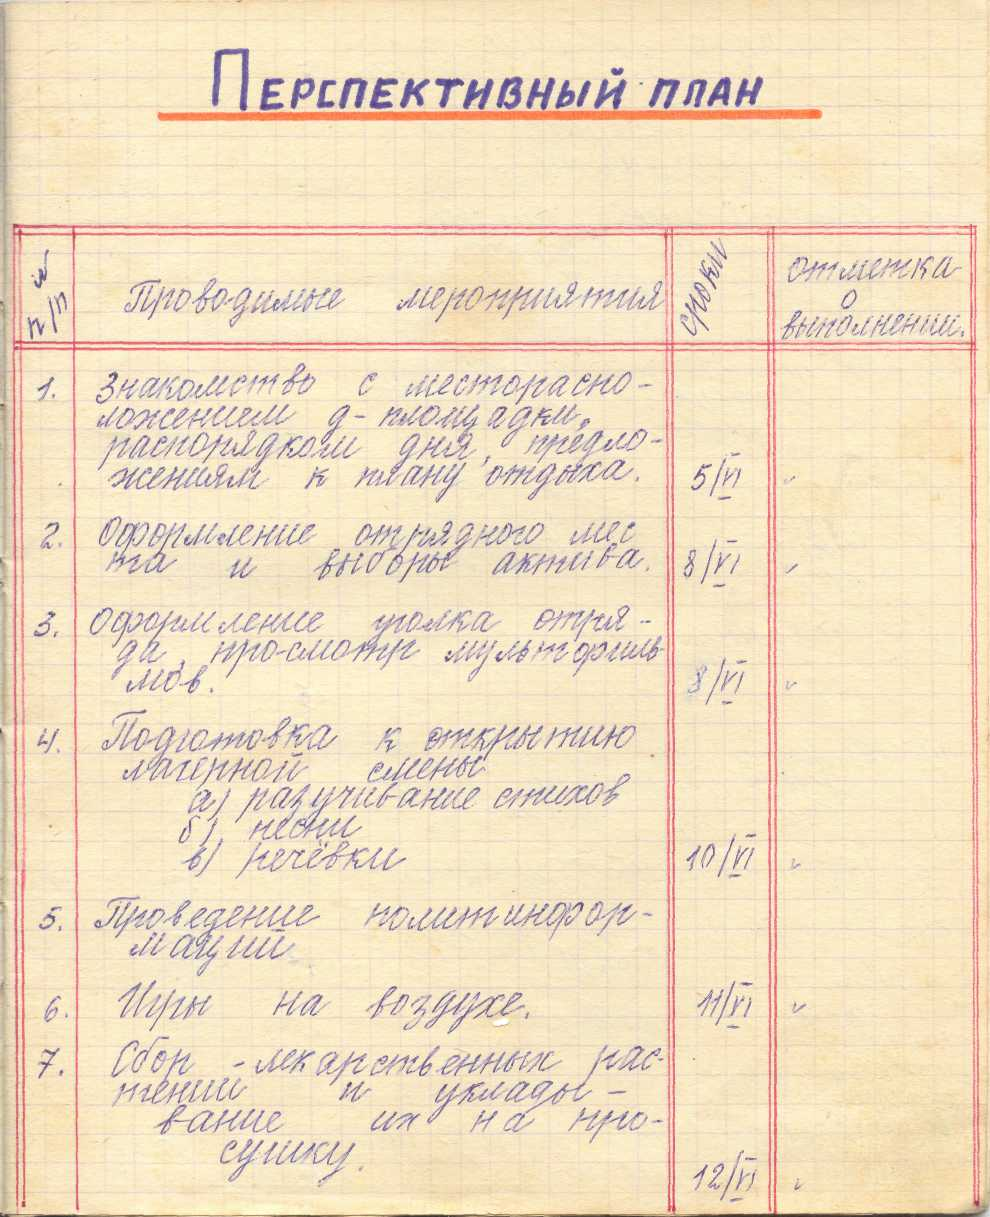 Перспективный план
№ п/п Проводимые мероприятия сроки отметка о выполнении.
1. Знакомство с местораспо-
ложением д-площадки,
распорядком дня, предло-
жениям к плану отдыха. 5/VI "
2. Оформление отрядного мес
та и выборы актива. 8/VI "
3. Оформление уголка отря-
да, просмотр мультфиль-
мов. 8/VI "
4. Подготовка к открытию
лагерной смены
а) разучивание стихов
б) песни
в) речёвки 10/VI "
5. Проведение политинфор-
маций
6. Игры на воздухе. 11/VI "
7. Сбор лекарственных рас-
тений и уклады-
вание их на про-
сушку. 12/VI "